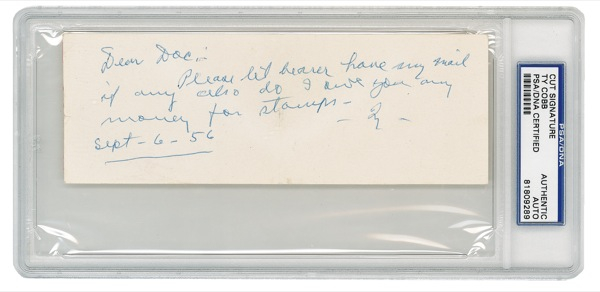 Dear Doc:
Please let bearer have my mail
if any also do I owe you any
money for stamps -
- Ty -
Sept - 6 - 56
CUT SIGNATURE
TY COBB
PSA/DNA CERTIFIED
AUTHENTIC
AUTO
81809289
PSA/DNA